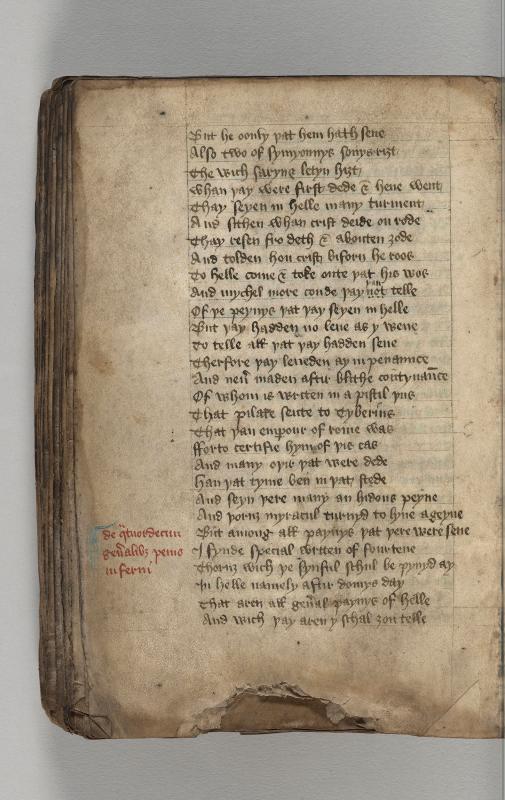 But he oonly þat hem hath sene
Also two of symyonnys sonys riȝt
The wich saryne letyn hiȝt
Whan þay were first dede & hene went
Thay seyen in helle many turment
And sithen whan crist deide on rode
Thay resen fro deth & abouten ȝode
And tolden hou crist biforn he roos
To helle come & toke oute þat his wos
And mychel more coude þay not telle
Of þe peynys þat þay seyen in helle
But þay hadden no leue as y wene
To telle all þat þay hadden sene
Therfore þay leueden ay in penaunce
And neuᷣ maden aftir blithe contynaūce
Of whom is writen in a pistil þus
That pilate sente to Tyberius
That þan empour of rome was
fforto certifie hym of þis cas
And many oþir þat were dede
Han þat tyme ben in þat stede
And seyn þere many an hidous peyne
And þoruȝ myracul turnyd to lyue aȝeyne
But among all paynys þat þere were sene
I fynde special writen of fourtene
Thoruȝ wich þe synful schul be pynyd ay
In helle namely aftir domys day
That aren all gen̄al paynys of helle
And wich þay aren y schal ȝou telle
de q̄tuordecim
gen̄alibȝ penis
inferni